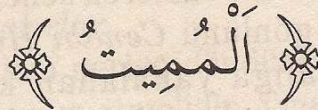 اَلْمُمِيتُ